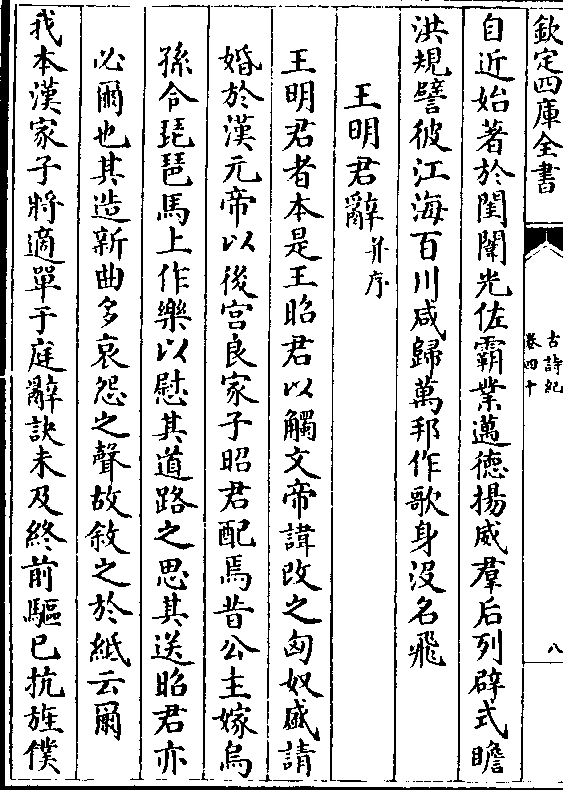 欽定四庫全書
古詩紀
卷四十
八
自近始著於閨闈光佐霸業邁德揚威羣后列辟式瞻
洪規譬彼江海百川咸歸萬邦作歌身没名飛
王明君辭并序
王明君者本是王昭君以觸文帝諱改之匈奴盛請
婚於漢元帝以後宫良家子昭君配焉昔公主嫁烏
孫令琵琶馬上作樂以慰其道路之思其送昭君亦
必爾也其造新曲多哀怨之聲故敘之於紙云爾
我本漢家子將適單于庭辭訣未及終前驅已抗旌僕